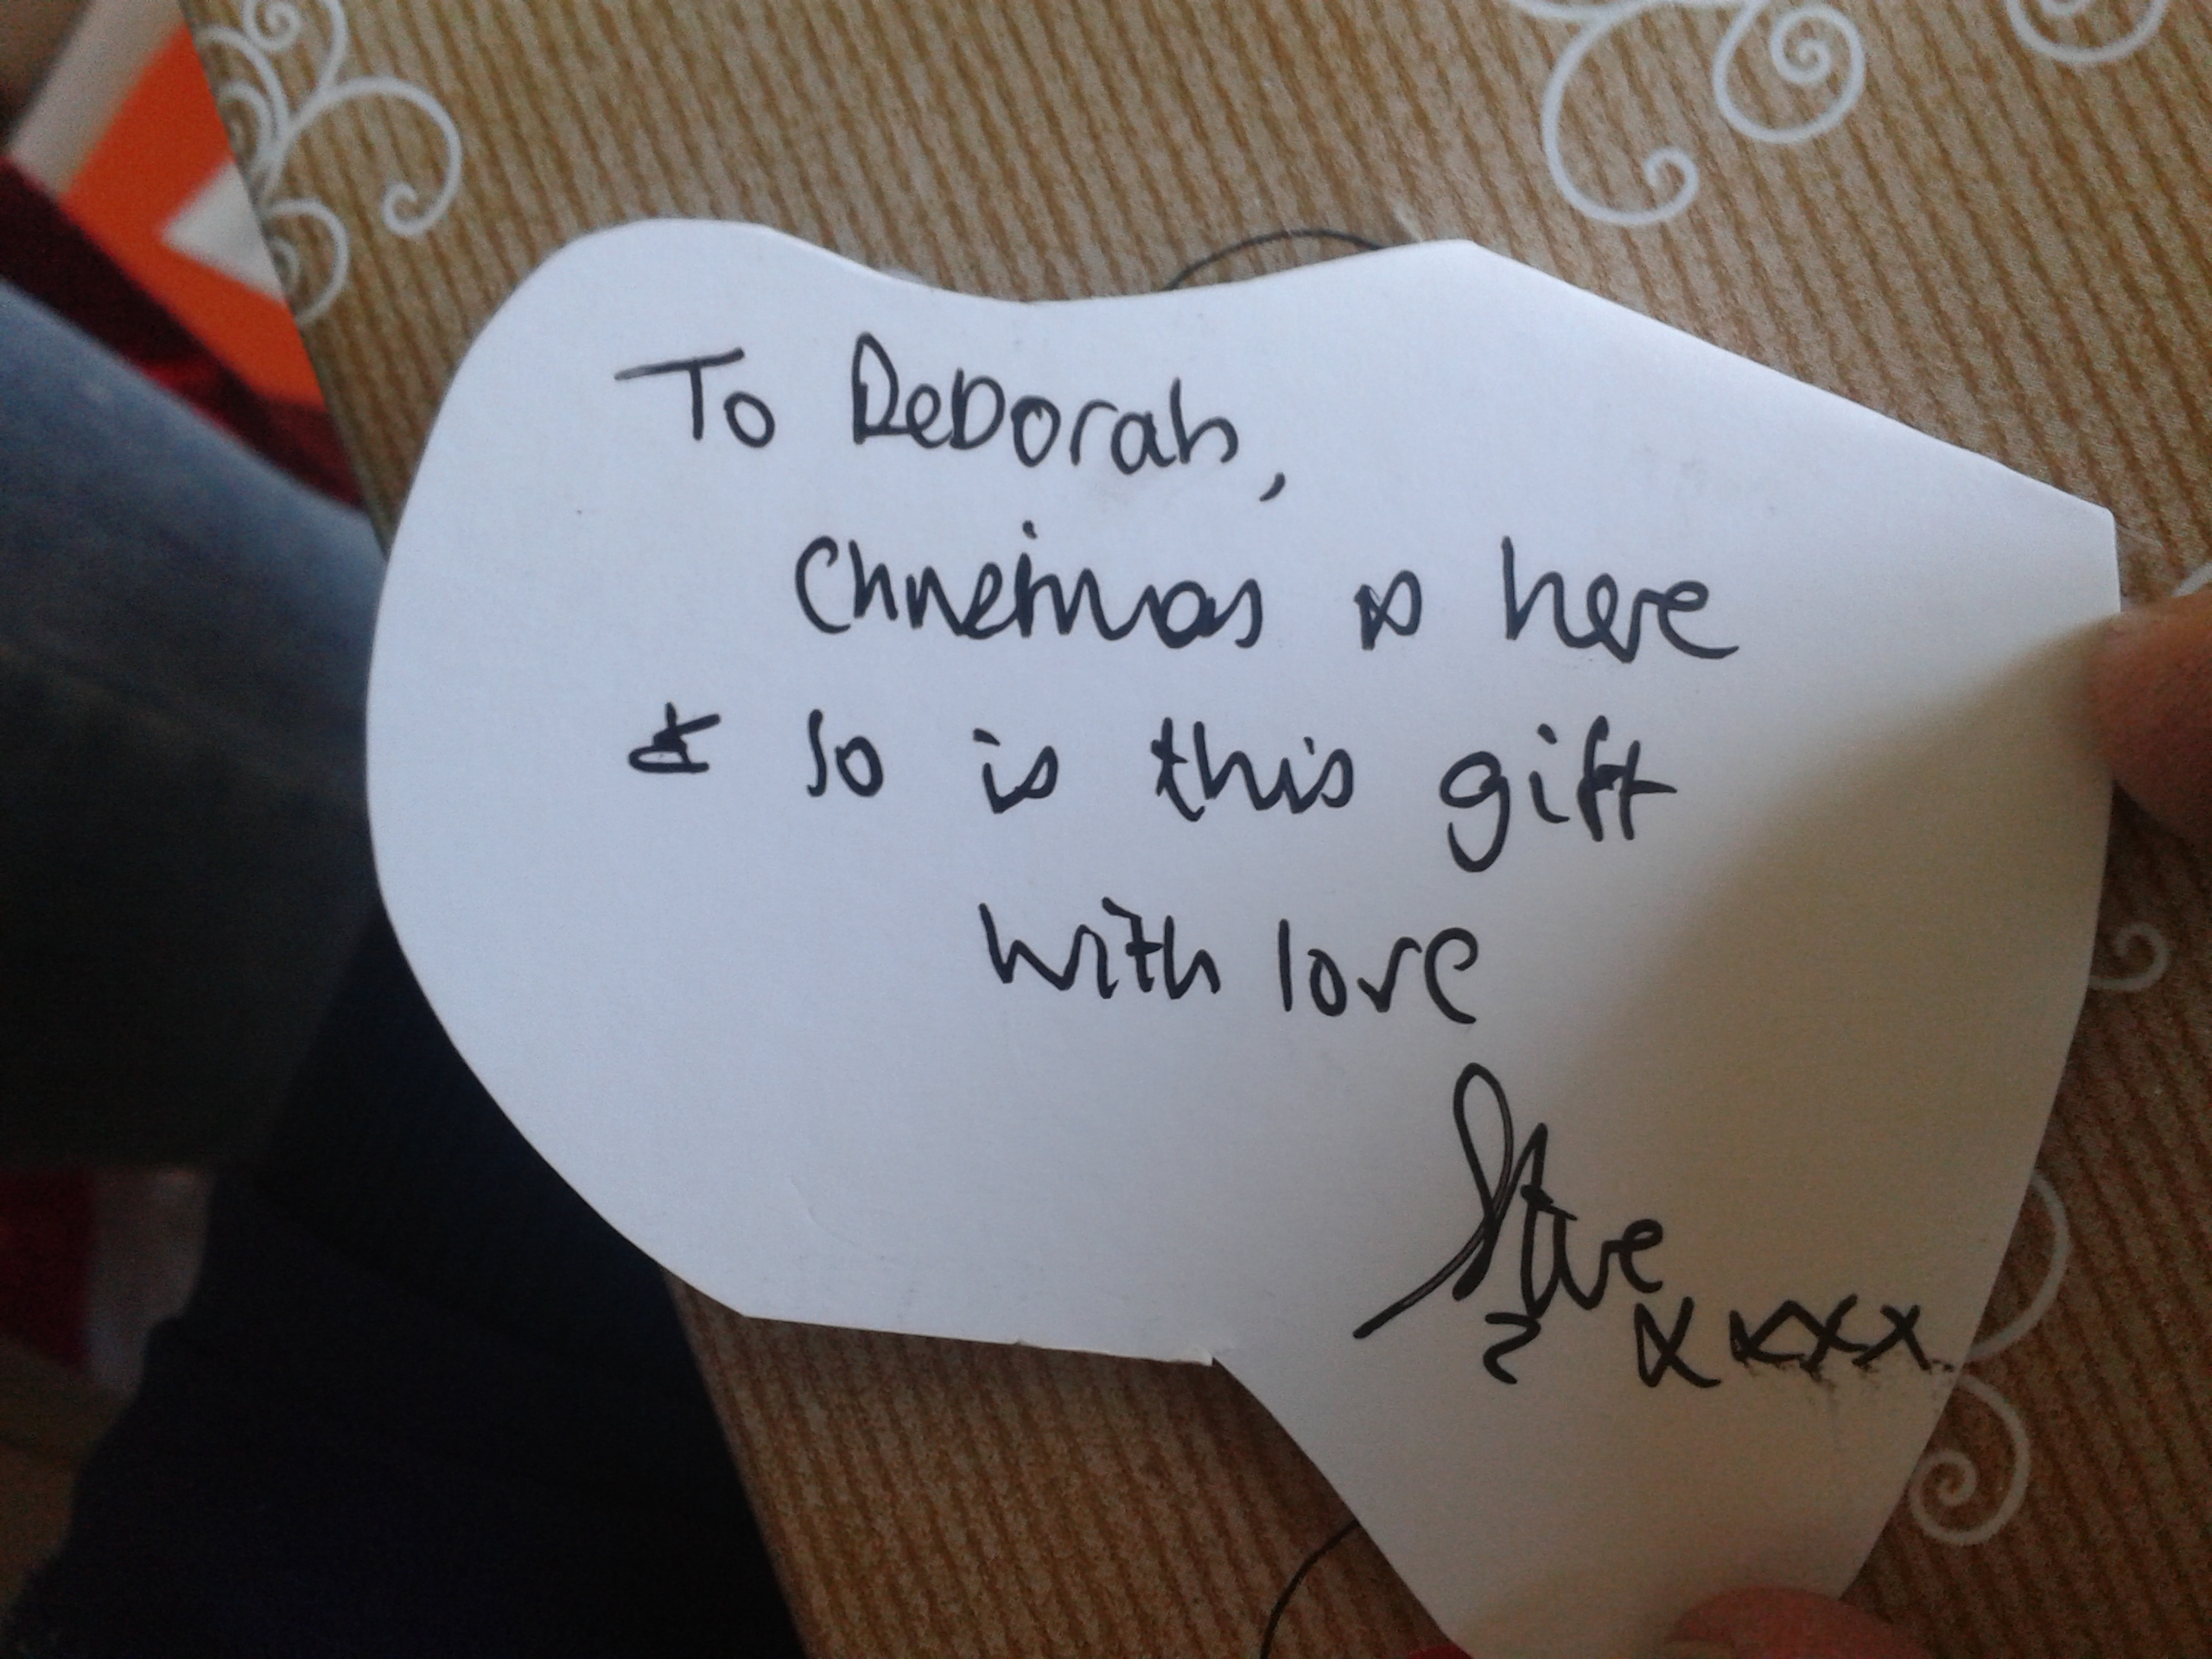 To Deborah,
Christmas is here
& so is this gift
with love
Steve
xxxx